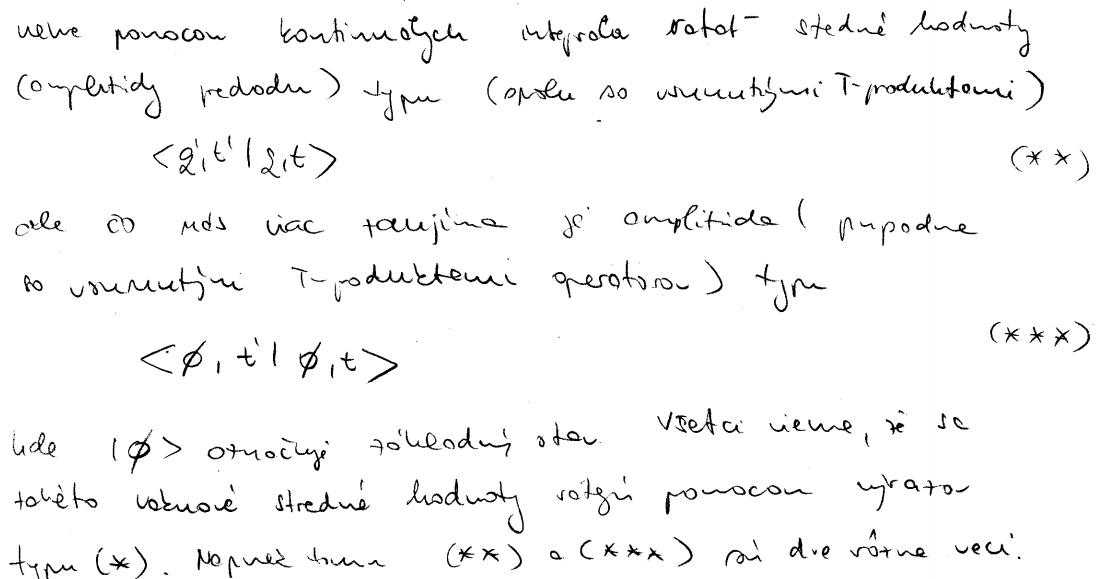 vieme pomocou kontinuálnych integrálov rátať stredné hodnoty
(amplitúdy prechodu) typu (spolu so vsunutými T-produktami)
<q',t'|q,t> (**)
ale čo nás viac zaujíma je amplitúda (prípadne
so vsunutými T-produktami operátorov) typu
<ø, t'| ø,t> (***)
kde |ø> označuje základný stav. Všetci vieme, že sa
takéto vákuové stredné hodnoty rátajú pomocou výrazov
typu (*). Napriek tomu (**) a (***) sú dve rôzne veci.